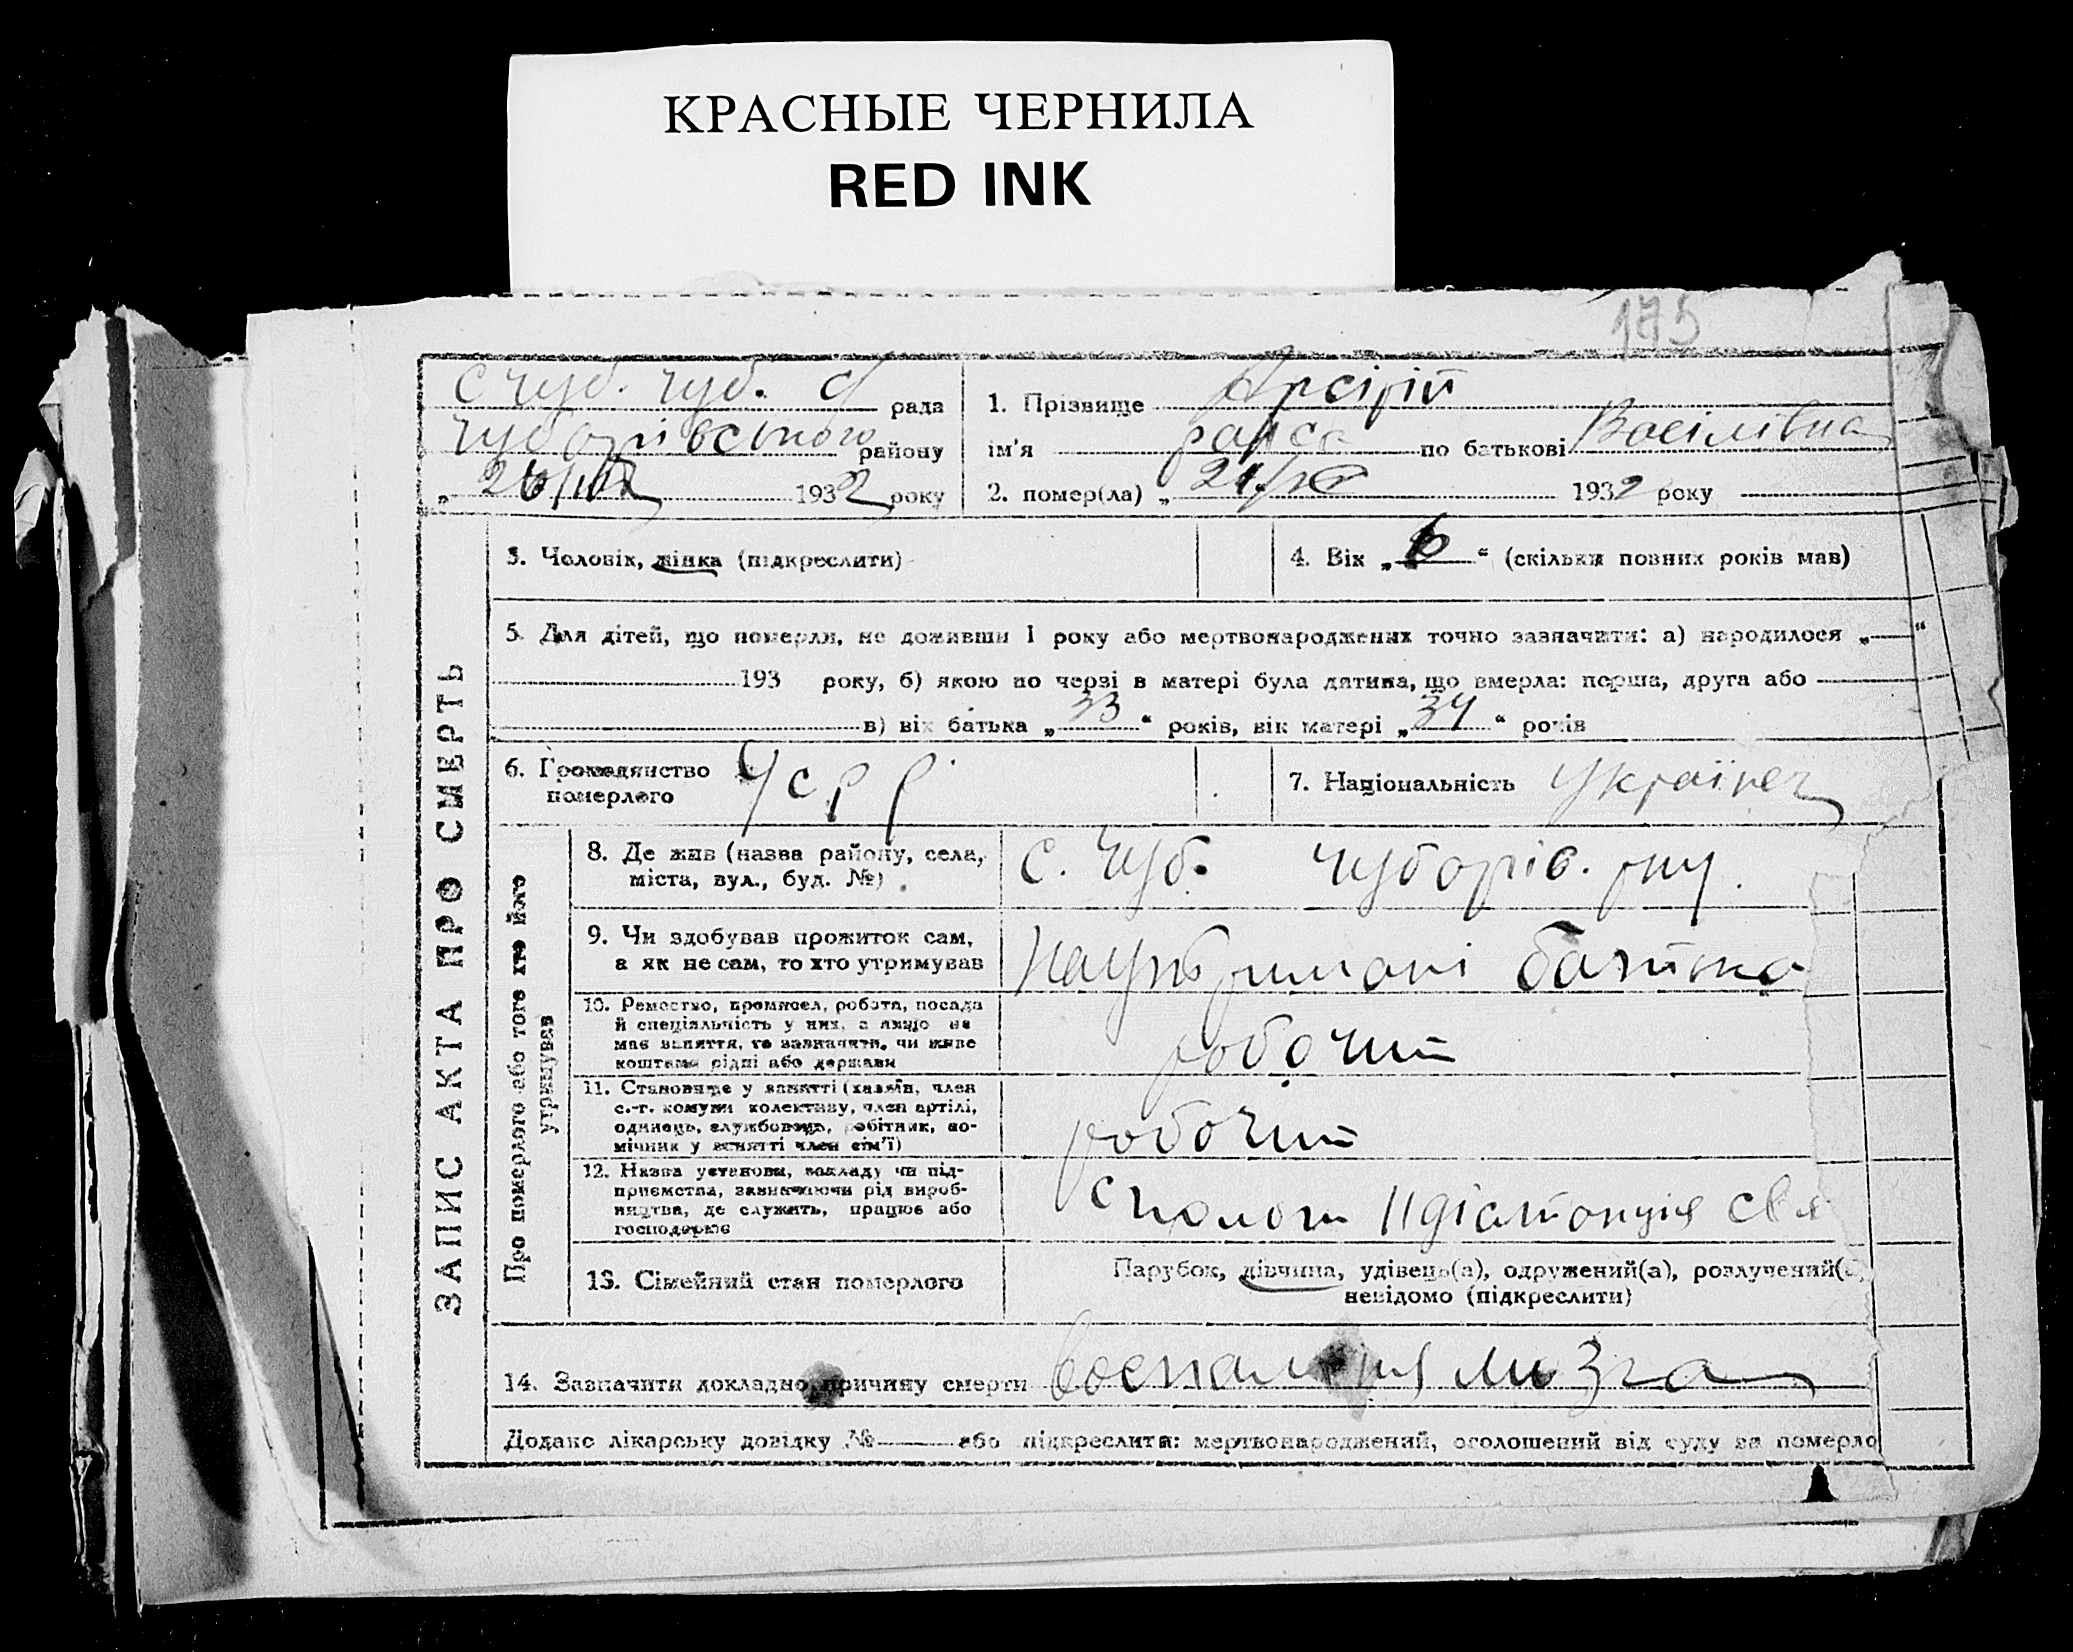 КРАСНЫЕ ЧЕРНИЛА
RED INK
175
с Чуб. Чуб. с/ рада
Чубарівського району
„ 26/ 1932 року
1. Прізвище Арсірій
ім'я раиса по батькові Васілівна
2. помер(ла) „ 24/ 1932 року
ЗАПИС АКТА ПРО СМЕРТЬ
3. Чоловік, жінка (підкреслити)
4. Вік „ 6 “ (скільки повних років мав)
5. Для дітей, що померли, не доживши 1 року або мертвонароджених точно зазначити: а) народилося „ “
193 року, б) якою по черзі в матері була дитина, що вмерла: перша, друга або
в) вік батька „ 33 “ років, вік матері „ 34 “ років
6. Громадянство померлого УСРР
7. Національність Українец
Про померлого або того хто його утримував
8. Де жив (назва району, села,
міста, вул., буд. №)
с. Чуб. Чубарів. рну.
9. Чи здобував прожиток сам,
а як не сам, то хто утримував
батька
10. Ремество, промисел, робота, посада
й спеціальність у них, а якщо не
має заняття, то зазначити, чи живе
коштами рідні або держави
робочий
11. Становище у занятті (хазяїн, член
с.-г. комуни колективу, член артілі,
одинець, службовець, робітник, по-
мічник у занятті член сім'ї)
робочий
12. Назва установи, закладу чи під-
приємства, зазначаючи рід вироб-
ництва, де служить, працює або
господарює
13. Сімейний стан померлого
Парубок, дівчина, удівець(а), одружений(а), розлучений(а)
невідомо (підкреслити)
14. Зазначити докладно причину смерти воспаления мозга
Додано лікарську довідку № або підкреслити: мертвонароджений, оголошений від суду за померло